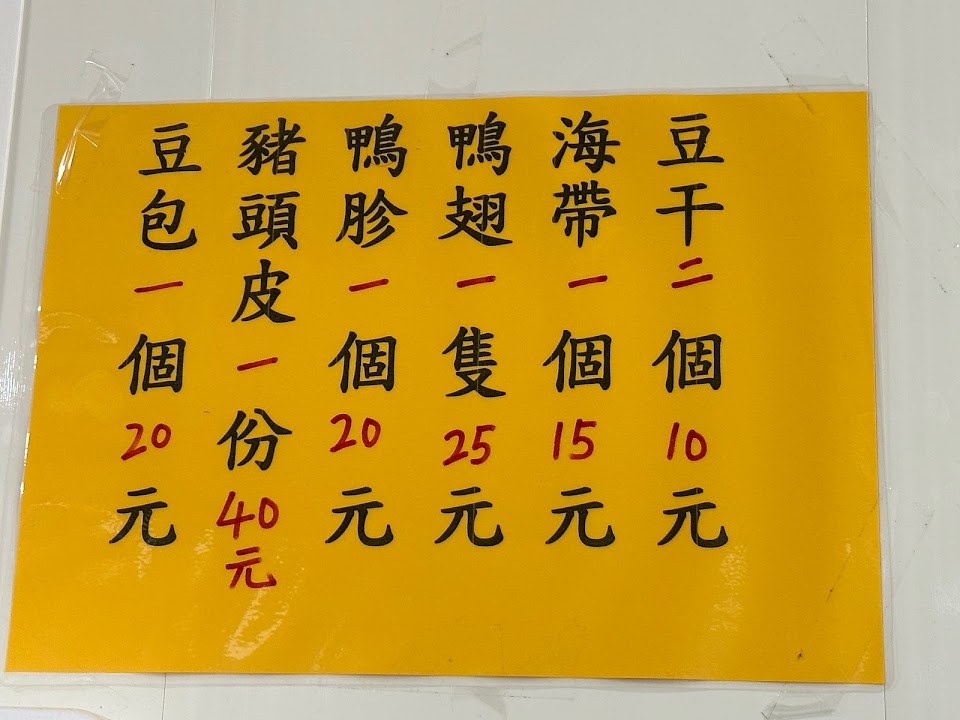 豆干二個10元
海帶一個15元
鴨翅一隻25元
鴨胗一個20元
豬頭皮一份40元
豆包一個20元